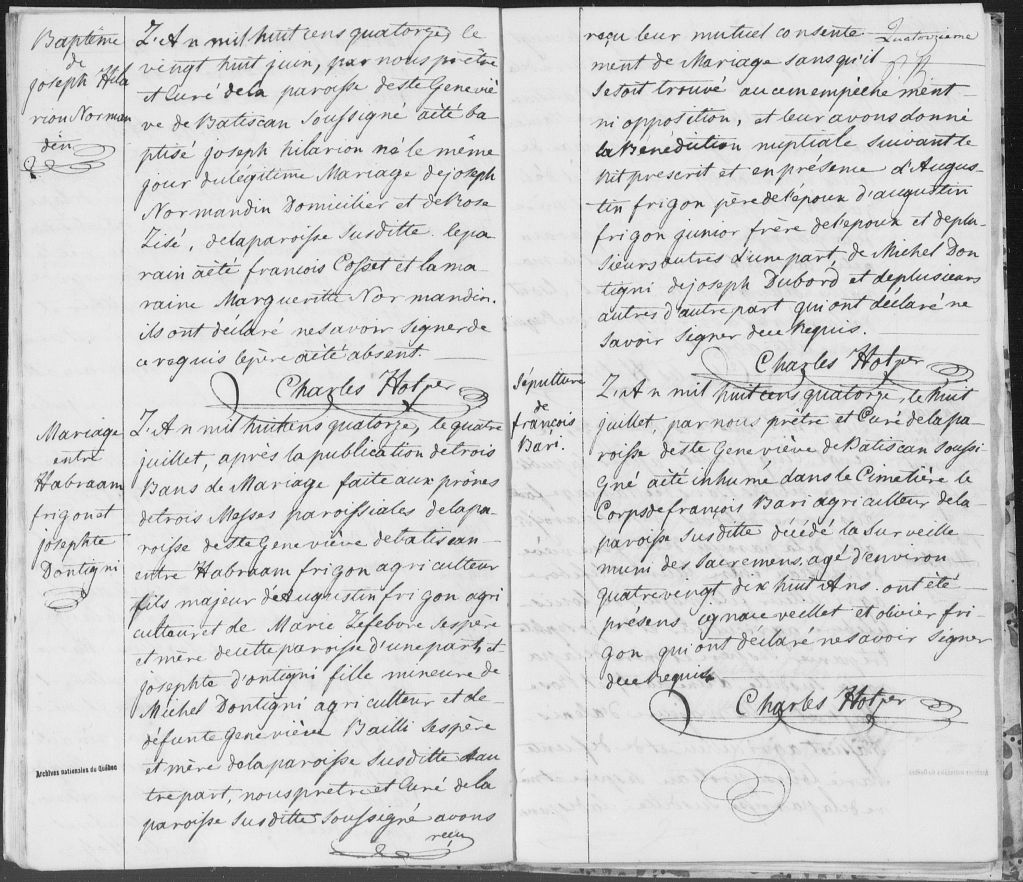 Baptême
de
joseph Hila
rion Norman
din
L'An mil huit cens quatorze, le
vingt huit juin, par nous prêtre
et Curé de la paroisse de Ste Geneviè
ve de Batiscan soussigné a été ba
ptisé joseph hilarion né le même
jour du legitime Mariage de joseph
Normandin Domicilier et de Rose
Lisé, de la paroisse susditte le pa
rain a été francois Cosset et la ma-
raine Margueritte Normandin.
ils ont déclaré ne savoir signer de
ce requis le père a été absent.
Charles Hotper
Mariage
entre
Habraam
frigon et
josephte
Dontigni
L'An mil huit cens quatorze, le quatre
juillet, après la publication de trois
Bans de Mariage faite aux prônes
de trois Messes paroissiales de la pa-
roisse de Ste Geneviève de batiscan
entre Habraam frigon agriculteur
fils majeur de Augustin frigon agri
culteur et de Marie Lefebvre ses père
et mère de cette paroisse d'une part, et
josephte d'ontigni fille mineure de
Michel Dontigni agriculteur et de
défunte Geneviève Bailli ses père
et mère de la paroisse susditte d'au
tre part, nous prêtre et Curé de la
paroisse susditte soussigné avons
reçu
Archives nationales du Québec
Quatorzieme
reçu leur mutuel consente-
ment de Mariage sans qu'il
se soit trouvé aucun empêchement
ni opposition, et leur avons donné
la Bénédiction nuptiale suivant le
Rit prescrit et en présence d'Augus-
tin frigon père de l'époux d'augustin
frigon junior frère de l'epoux et de plu-
sieurs autres d'une part, de Michel Don
tigni de joseph Dubord et de plusieurs
autres d'autre part qui ont déclaré ne
savoir signer de ce Requis.
Charles Hotper
Sépulture
de
françois
Bari.
L'An mil huit cens quatorze, le huit
juillet, par nous prêtre et Curé de la pa-
roisse de Ste Geneviève de Batiscan soussi-
gné a été inhumé dans le Cimetière le
Corps de françois Bari agriculteur de la
paroisse susditte décédé la surveille
muni des Sacremens, agé d'environ
quatre vingt dix huit Ans. ont été
présens ignace veillet et olivier fri-
gon qui ont déclaré ne savoir signer
de ce Requis
Charles Hotper